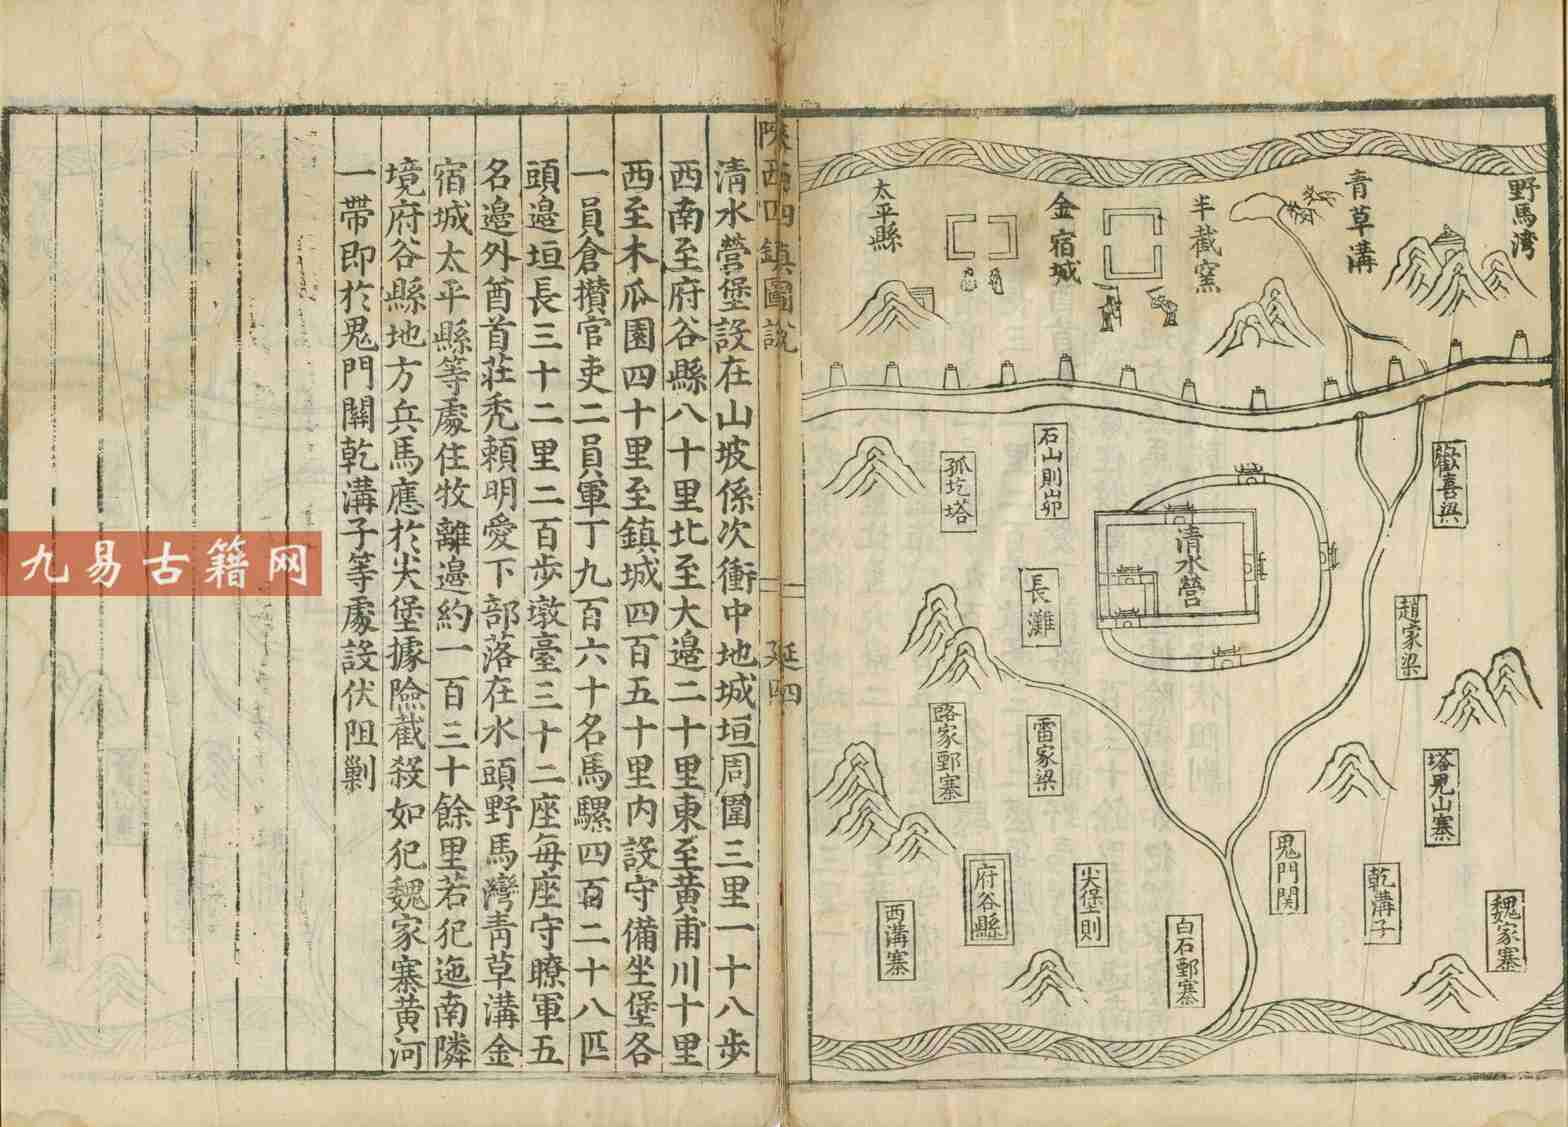 野馬湾
青草溝
半截窑
金宿城
太平縣
歡喜梁
石山則峁
孤圪塔
清水營
長灘
趙家梁
路家郵寨
雷家梁
塔児山寨
鬼門関
乾溝子
魏家寨
府谷縣
尖堡則
西溝寨
白石郵寨
陝西四鎮圖說
延四
清水營堡設在山坡係次衝中地城垣周圍三里一十八步
西南至府谷縣八十里北至大邊二十里東至黃甫川十里
西至木瓜園四十里至鎮城四百五十里內設守備坐堡各
一員倉攢官吏二員軍丁九百六十名馬騾四百二十八匹
頭邊垣長三十二里二百步墩臺三十二座每座守瞭軍五
名邊外酋首莊禿賴明愛下部落在水頭野馬灣青草溝金
宿城太平縣等處住牧離邊約一百三十餘里若犯迤南隣
境府谷縣地方兵馬應於尖堡據險截殺如犯魏家寨黃河
一帶即於鬼門關乾溝子等處設伏阻剿
九易古籍网